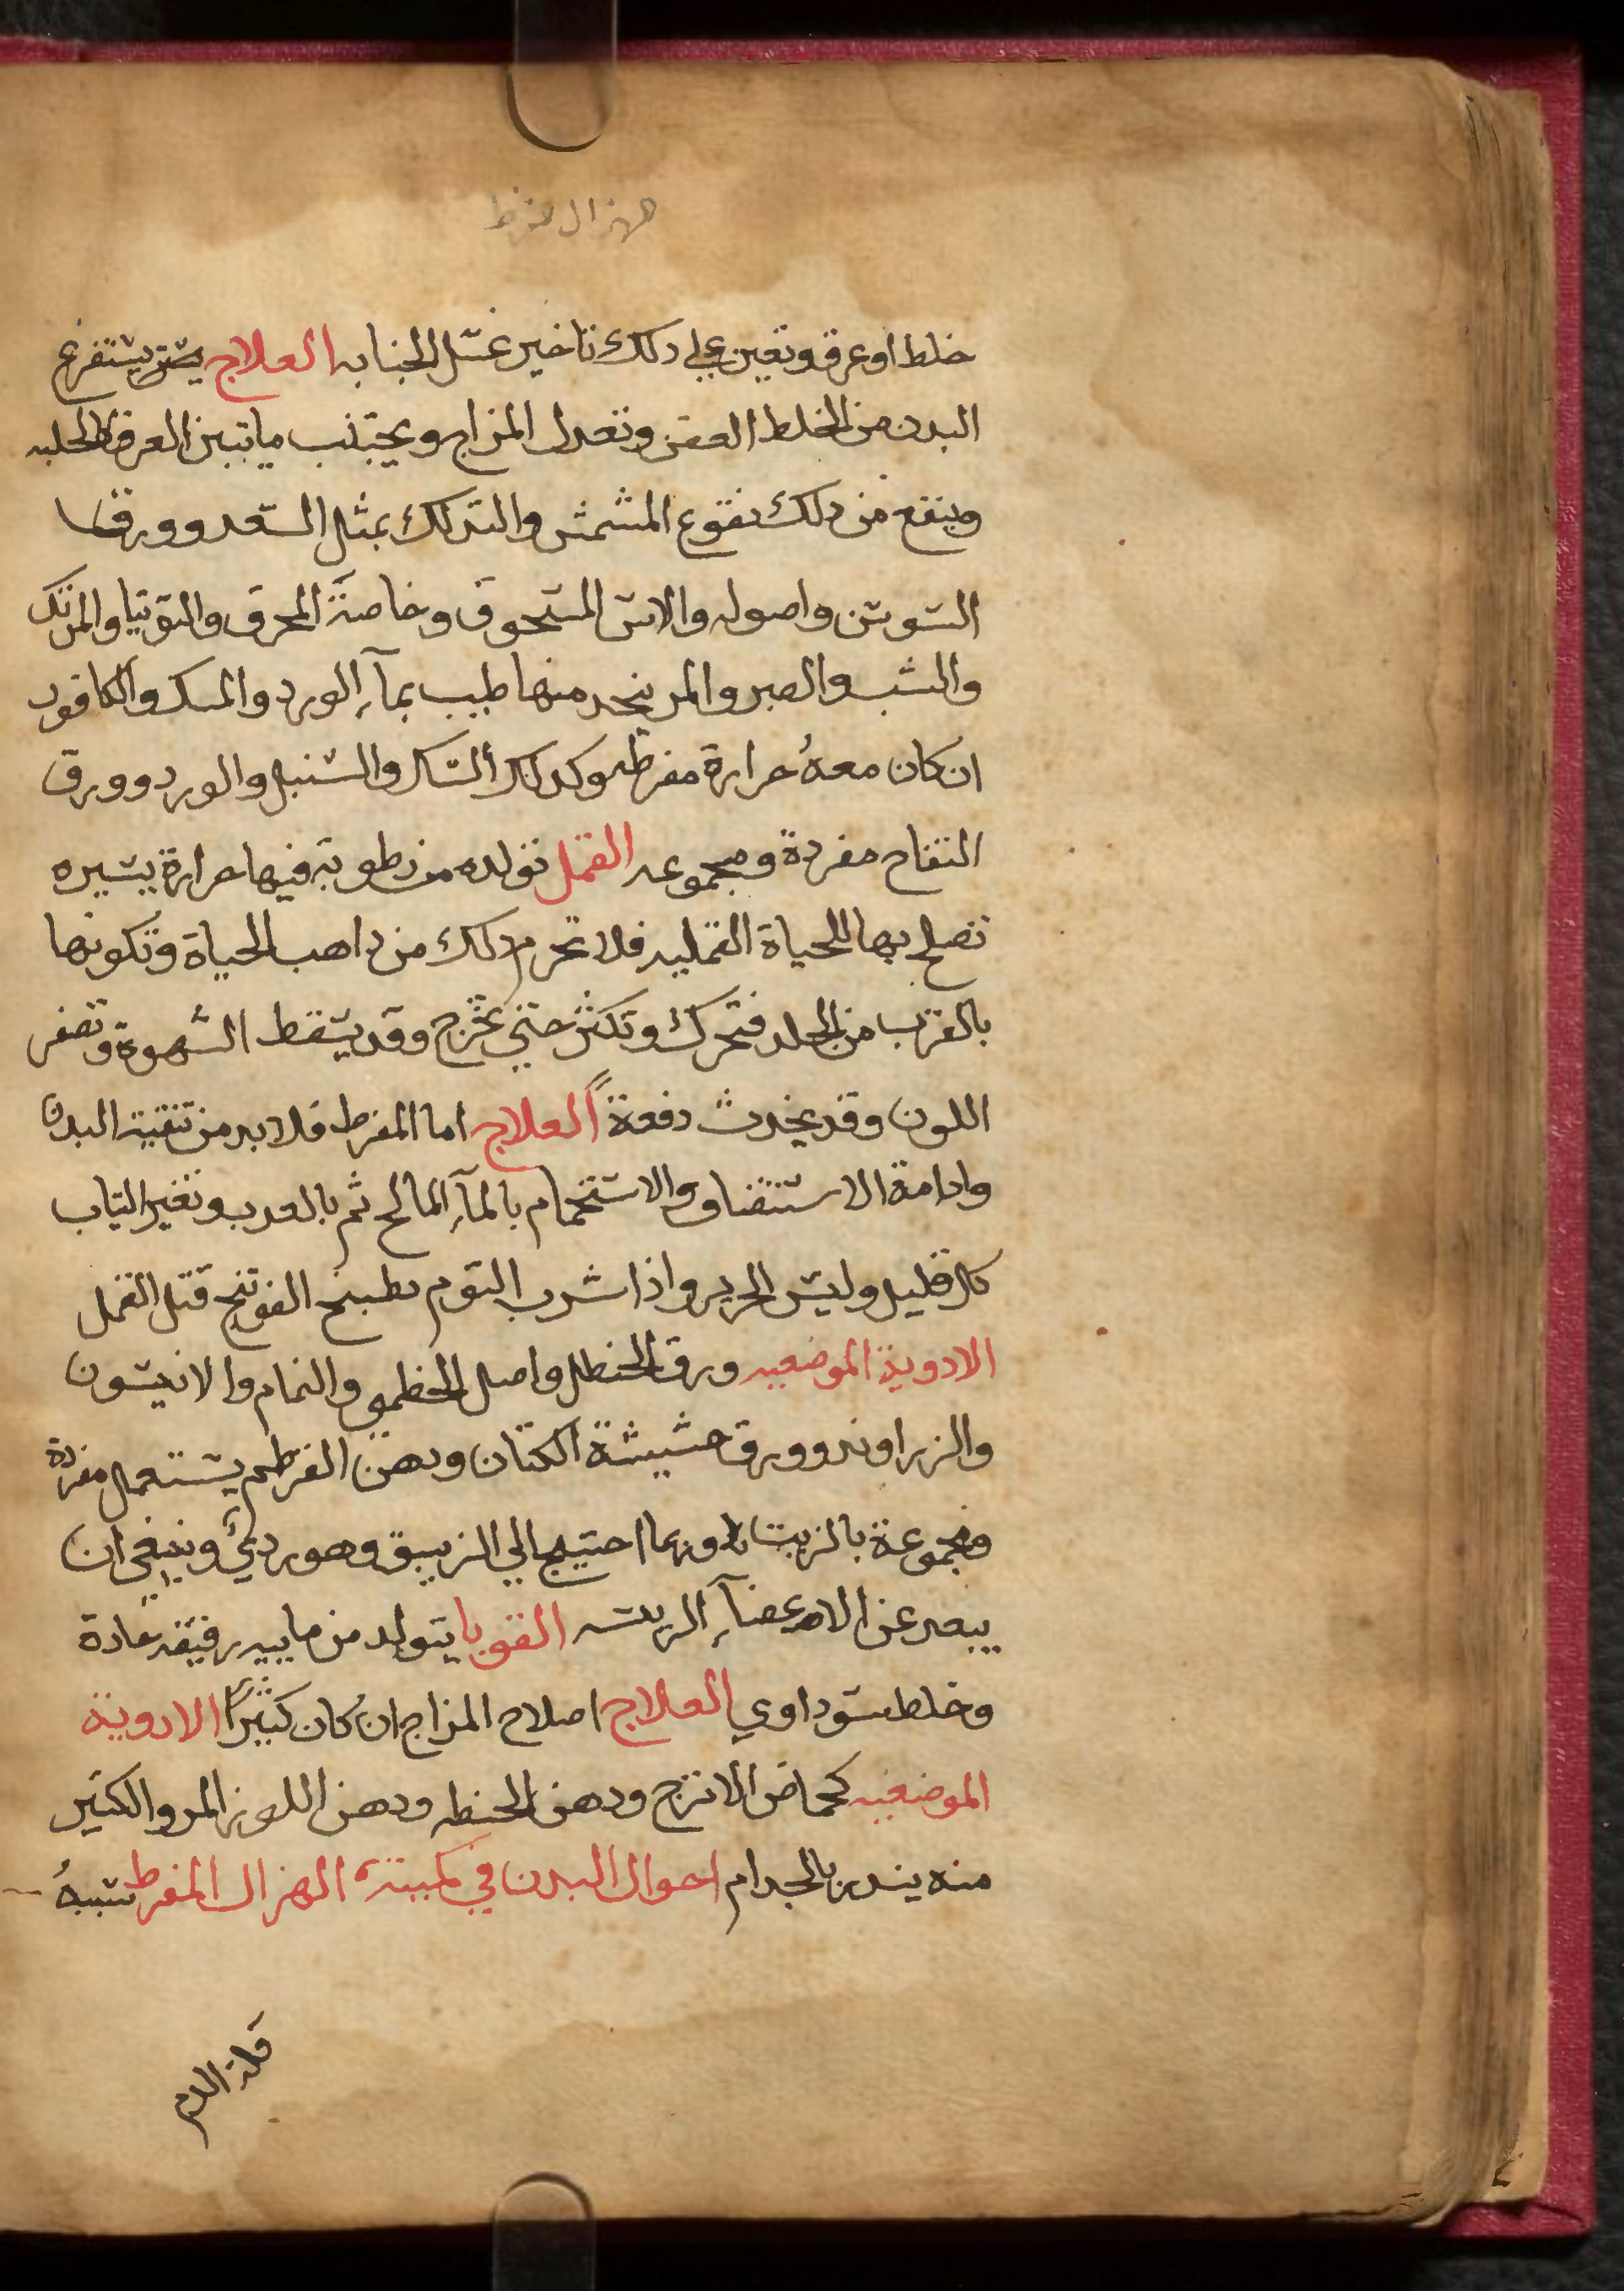 هزال مفرط
خلط او عرق وتعين علي دلك تاخير غسل الجنابه العلاج يستفرغ
البدن من الخلط العفن وتعدل المزاج ويجتنب ما تبين العرق كالحلبه
وينفع من دلك نقوع المشمش والتدلك بمثل السعد وورق
السوسن واصوله والاس المسحوق وخاصةً المحرق والتوتيا والمرتك
والشب والصبر والمر يتخد منها طيب بمآء الورد والمسك والكافور
ان كان معهُ حرارة مفرطه وكدلك السك والسنبل والورد وورق
التفاح مفردة ومجموعه القمل تولده من رطوبة فيها حرارة يسيره
تصلح بها للحياة القمليه فلا تحرم دلك من داهب الحياة وتكونها
بالقرب من الجلد فتحرك وتكثر حتي تخرج وقد يسقط الشهوة وتصفر
اللون وقد يحدث دفعةً العلاج اما المفرط فلا بد من تنقية البدن
وادامة الاستنقا والاستحمام بالمآء المالح ثم بالعدب وتغير التياب
كل قليل ولبس الحرير واذا شرب التوم بطبيخ الفوتنج قتل القمل
الادوية الموضعيه ورق الحنظل واصل الخطمي والنمام والانيسون
والزراوند وورق حشيشة الكتان ودهن القرطم يستعمل مفردة
ومجموعة بالزيت وربما احتيج الي الزيبق وهو رديٌ وينبغي ان
يبعد عن الاعضآء الريسه القوبا يتولد من ماييه رقيقه حادة
وخلط سوداوي العلاج اصلاح المزاج ان كان كثيرًا الادوية
الموضعيه كحماض الاترج ودهن الحنطه ودهن اللوز المر والكثير
منه يندر بالجدام احوال البدن في كميته الهزال المفرط سببهُ
قلة الدم